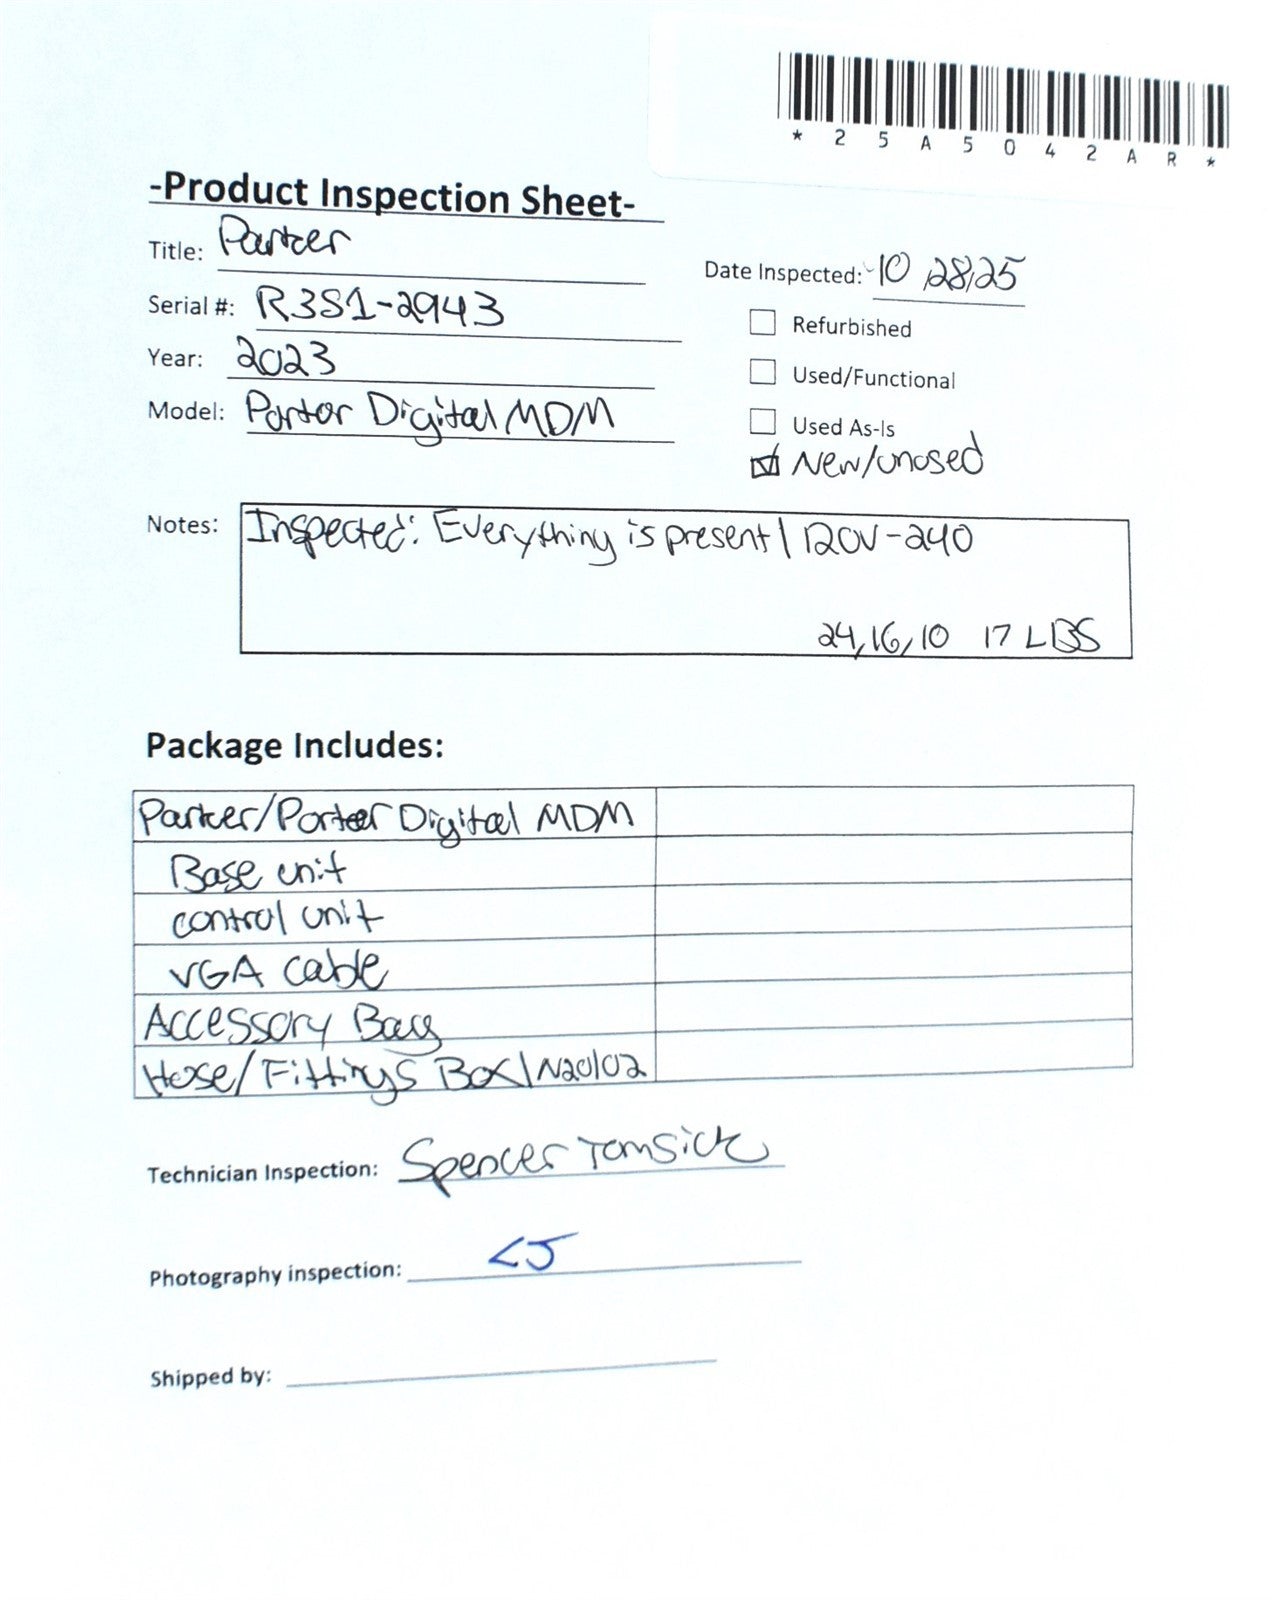 *25A5042AR*
-Product Inspection Sheet-
Title: Parker
Date Inspected: 10/28/25
Serial #: R3S1-2943
Refurbished
Year: 2023
Used/Functional
Model: Porter Digital MDM
Used As-Is
New/unused
Notes: Inspected: Everything is present | 120V-240
24,16,10 17 LBS
Package Includes:
Parker/Porter Digital MDM
Base unit
control unit
VGA cable
Accessory Bag
Hose/Fittings Box | N20/02
Technician Inspection: Spencer Tomsick
Photography inspection: LJ
Shipped by: